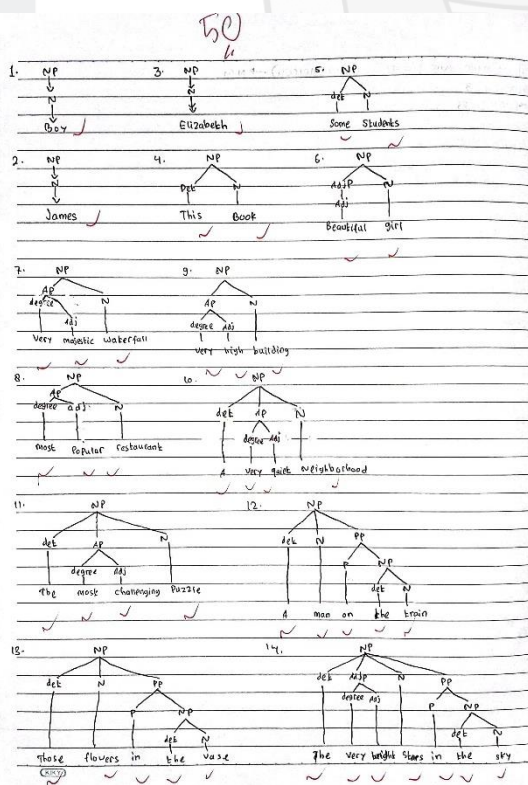 50
1. NP
N
Boy
3. NP
N
Elizabeth
5. NP
det N
Some Students
2. NP
N
James
4. NP
Det N
This Book
6. NP
AdjP N
Adj
Beautiful girl
7. NP
AP
degree N
Adj
Very majestic waterfall
9. NP
AP N
degree Adj
Very high building
8. NP
AP
degree adj. N
most Popular restaurant
10. NP
det AP N
degree Adj
A very quiet Neighborhood
11. NP
det AP N
degree Adj
The most challenging Puzzle
12. NP
det N PP
P NP
det N
A man on the train
13. NP
det N PP
P NP
det N
Those flowers in the vase
14. NP
det AdjP N PP
degree Adj P NP
det N
The very bright Stars in the sky
KIKY